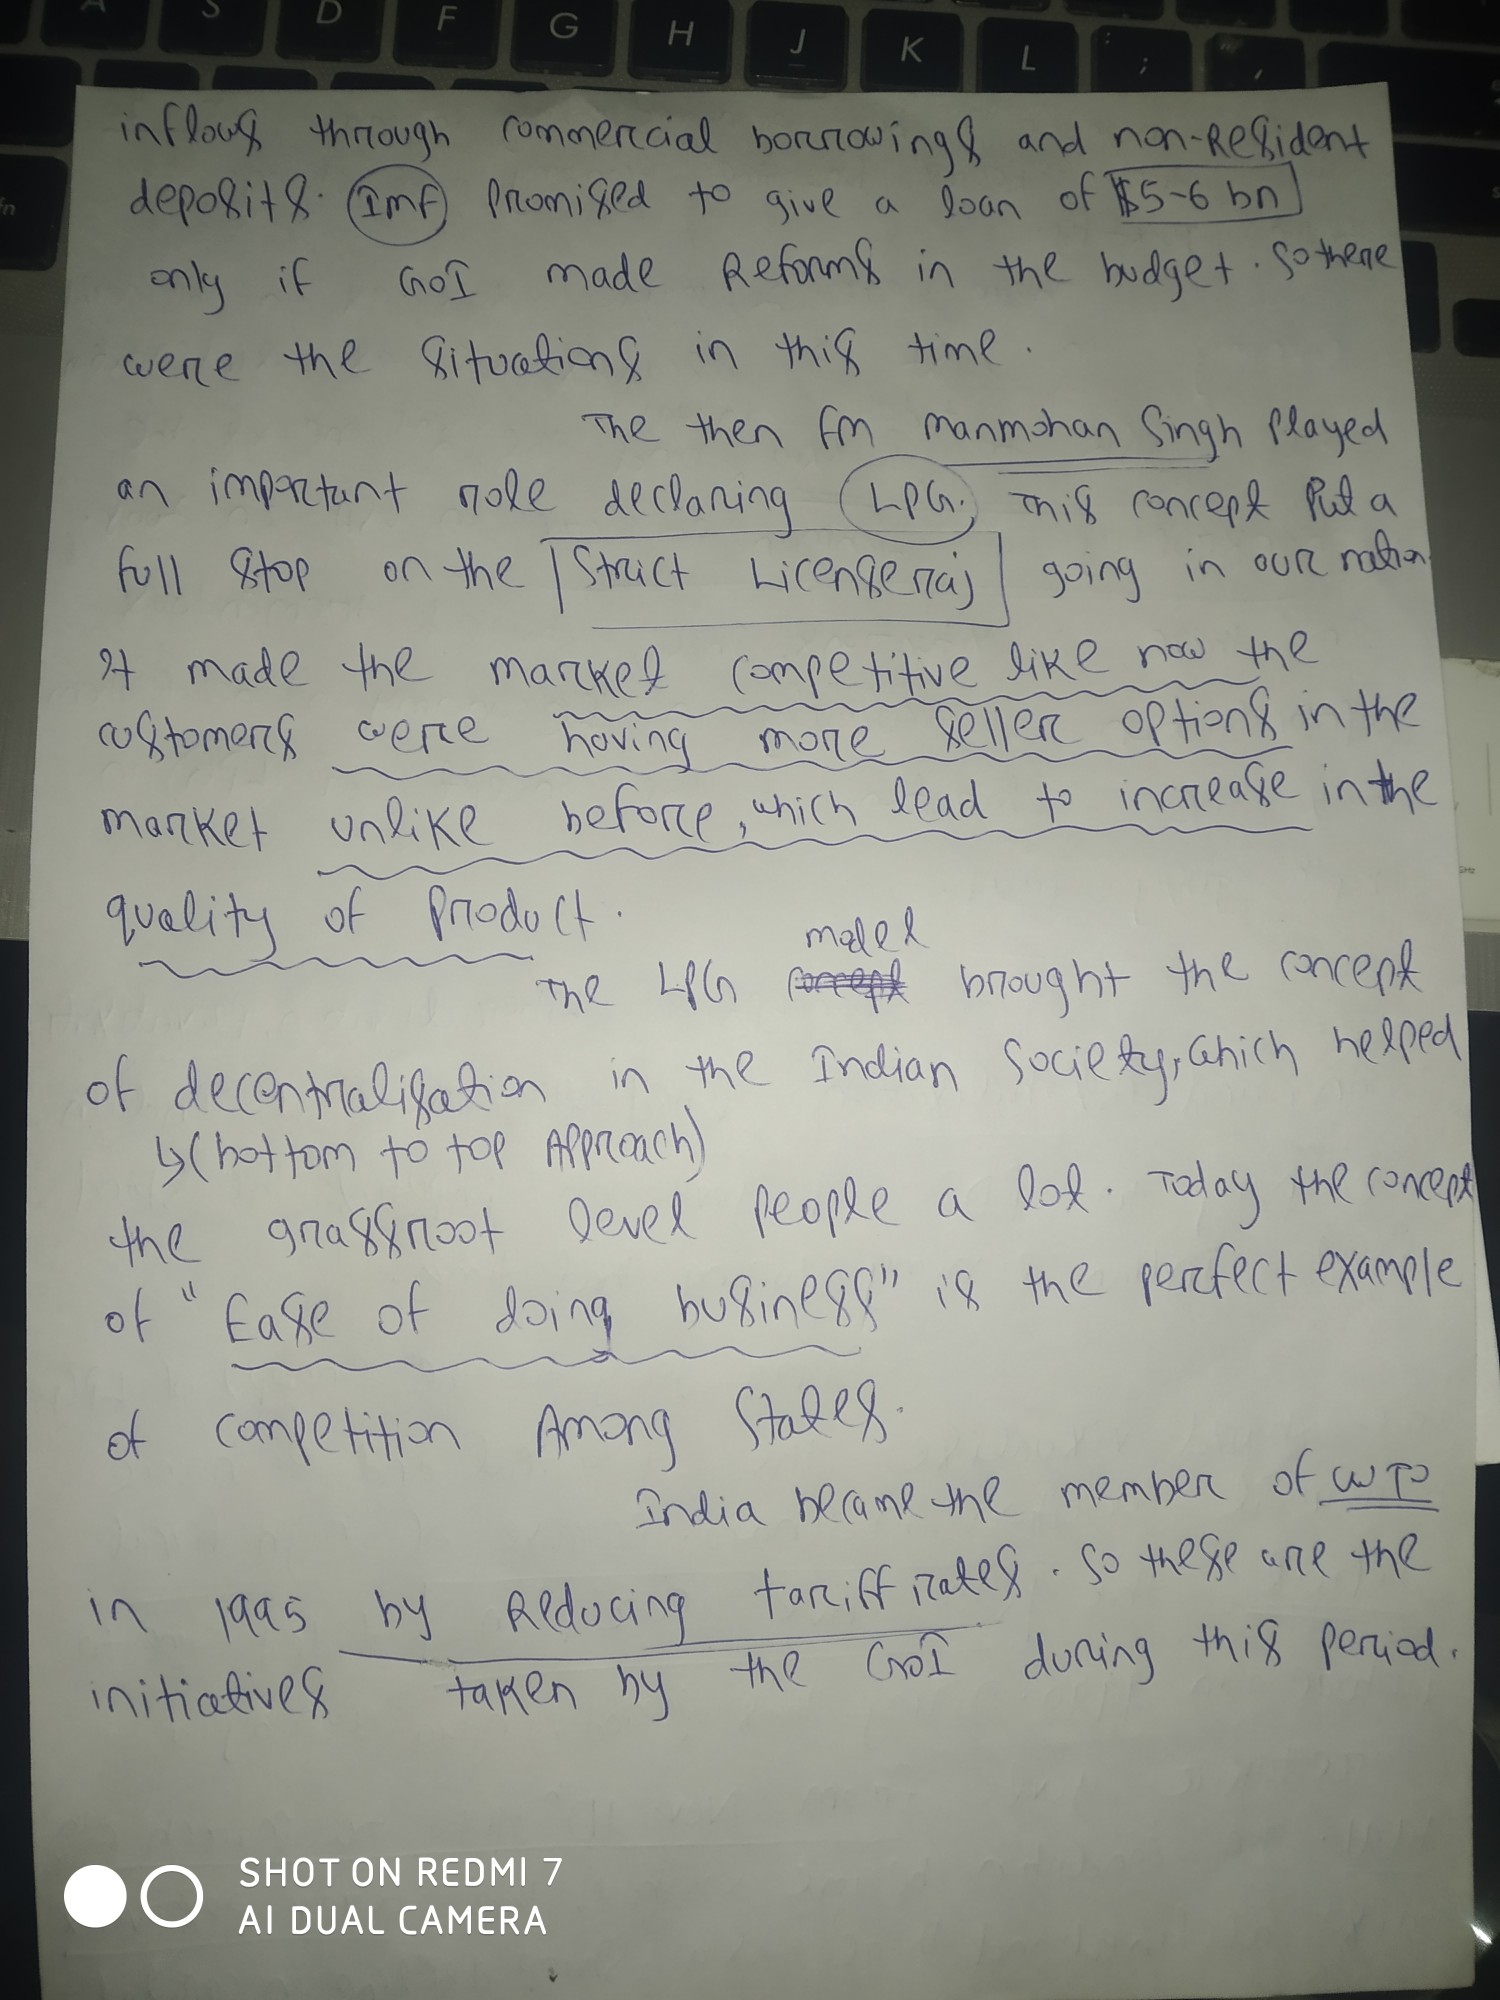 A S D F G H J K L : ; " '
fn
inflows through commercial borrowings and non-Resident
deposits. Imf promised to give a loan of $5-6 bn
only if GoI made Reforms in the budget. So there
were the situations in this time.
The then fm manmohan Singh played
an important role declaring LPG. This concept put a
full stop on the Strict Licenseraj going in our nation.
It made the market competitive like now the
customers were having more seller options in the
market unlike before, which lead to increase in the
quality of product.
model
The LPG concept brought the concept
of decentralisation in the Indian Society, which helped
↳(bottom to top Approach)
the grassroot level people a lot. Today the concept
of "Ease of doing business" is the perfect example
of competition Among States.
India became the member of WTO
in 1995 by Reducing tariff rates. So these are the
initiatives taken by the GoI during this period.
SHOT ON REDMI 7
AI DUAL CAMERA